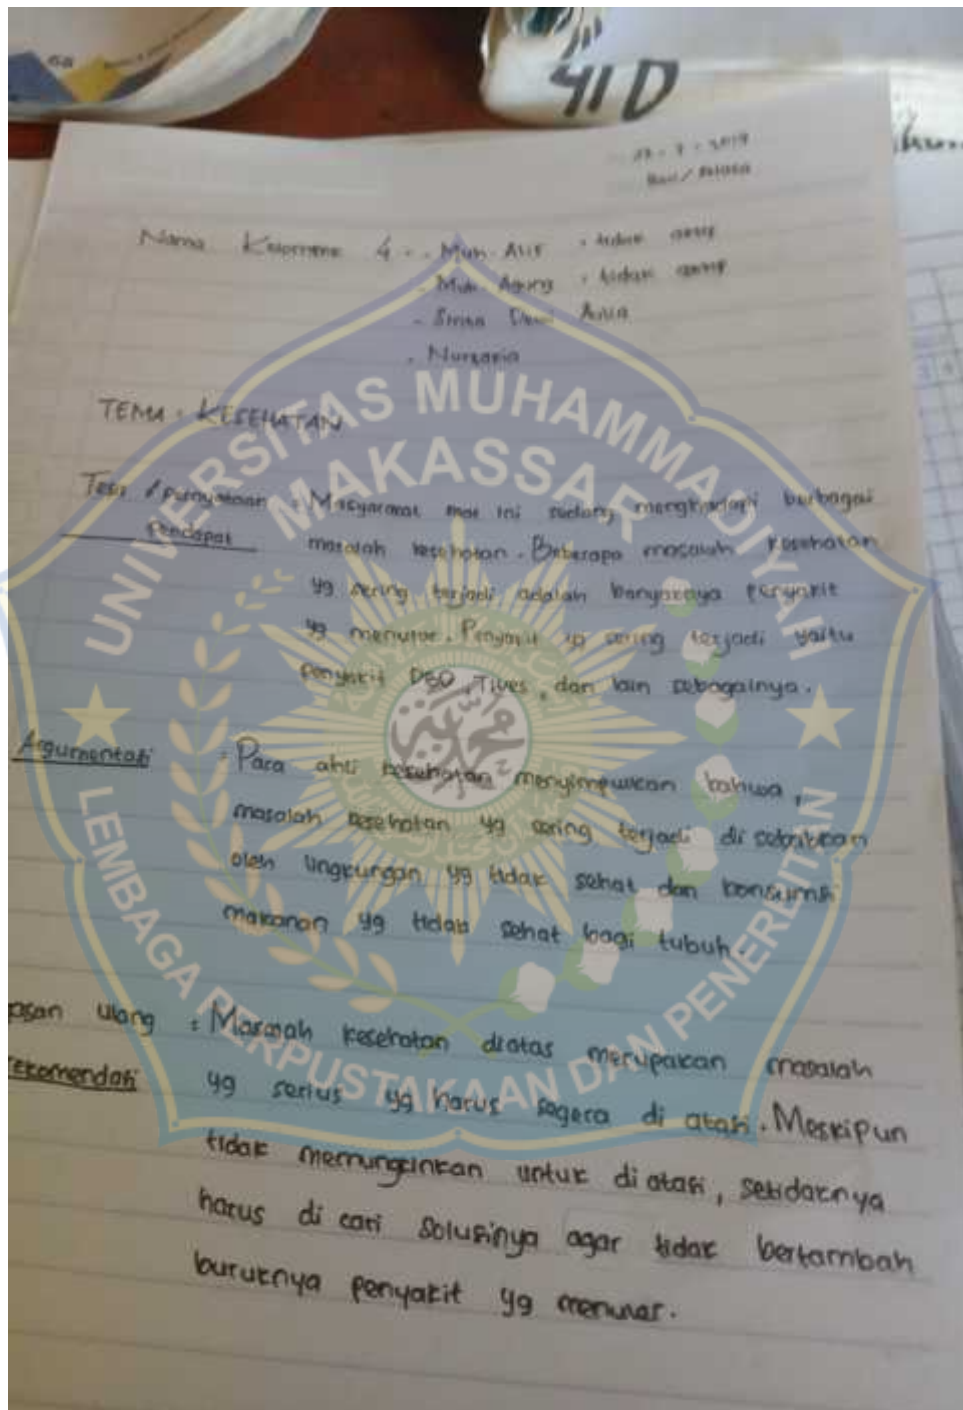 68
41 D
- 7 - 2019
Hari / Selasa
Nama Kelompok 4 : - Muh. Alif : tidak aktif
- Muh. Agung : tidak aktif
- Sinta Dewi Aulia
- Nurzakia
TEMA : KESEHATAN
Tesis / pernyataan : Masyarakat saat ini sedang menghadapi berbagai
Pendapat masalah kesehatan. Beberapa masalah kesehatan
yg sering terjadi adalah banyaknya penyakit
yg menular. Penyakit yg sering terjadi yaitu
penyakit DBD, Tives, dan lain sebagainya.
Argumentasi : Para ahli kesehatan menyimpulkan bahwa,
masalah kesehatan yg sering terjadi di sebabkan
oleh lingkungan yg tidak sehat dan konsumsi
makanan yg tidak sehat bagi tubuh.
asan ulang : Masalah kesehatan diatas merupakan masalah
rekomendasi yg serius yg harus segera di atasi. Meskipun
tidak memungkinkan untuk di atasi, setidaknya
harus di cari solusinya agar tidak bertambah
buruknya penyakit yg menular.
UNIVERSITAS MUHAMMADIYAH
MAKASSAR
محمد
LEMBAGA PERPUSTAKAAN DAN PENERBITAN